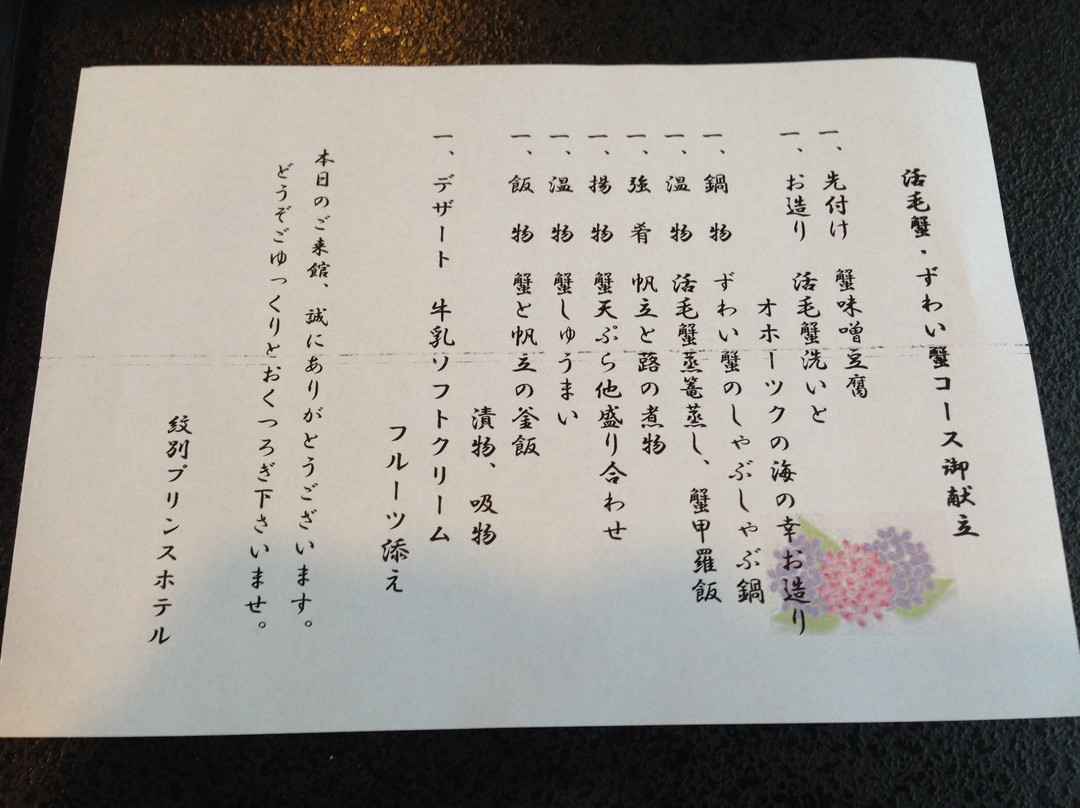 活毛蟹・ずわい蟹コース御献立
一、先付け 蟹味噌豆腐
一、お造り 活毛蟹洗いと
オホーツクの海の幸お造り
一、鍋 物 ずわい蟹のしゃぶしゃぶ鍋
一、温 物 活毛蟹蒸篭蒸し、蟹甲羅飯
一、強 肴 帆立と蕗の煮物
一、揚 物 蟹天ぷら他盛り合わせ
一、温 物 蟹しゅうまい
一、飯 物 蟹と帆立の釜飯
漬物、吸物
一、デザート 牛乳ソフトクリーム
フルーツ添え
本日のご来館、誠にありがとうございます。
どうぞごゆっくりとおくつろぎ下さいませ。
紋別プリンスホテル